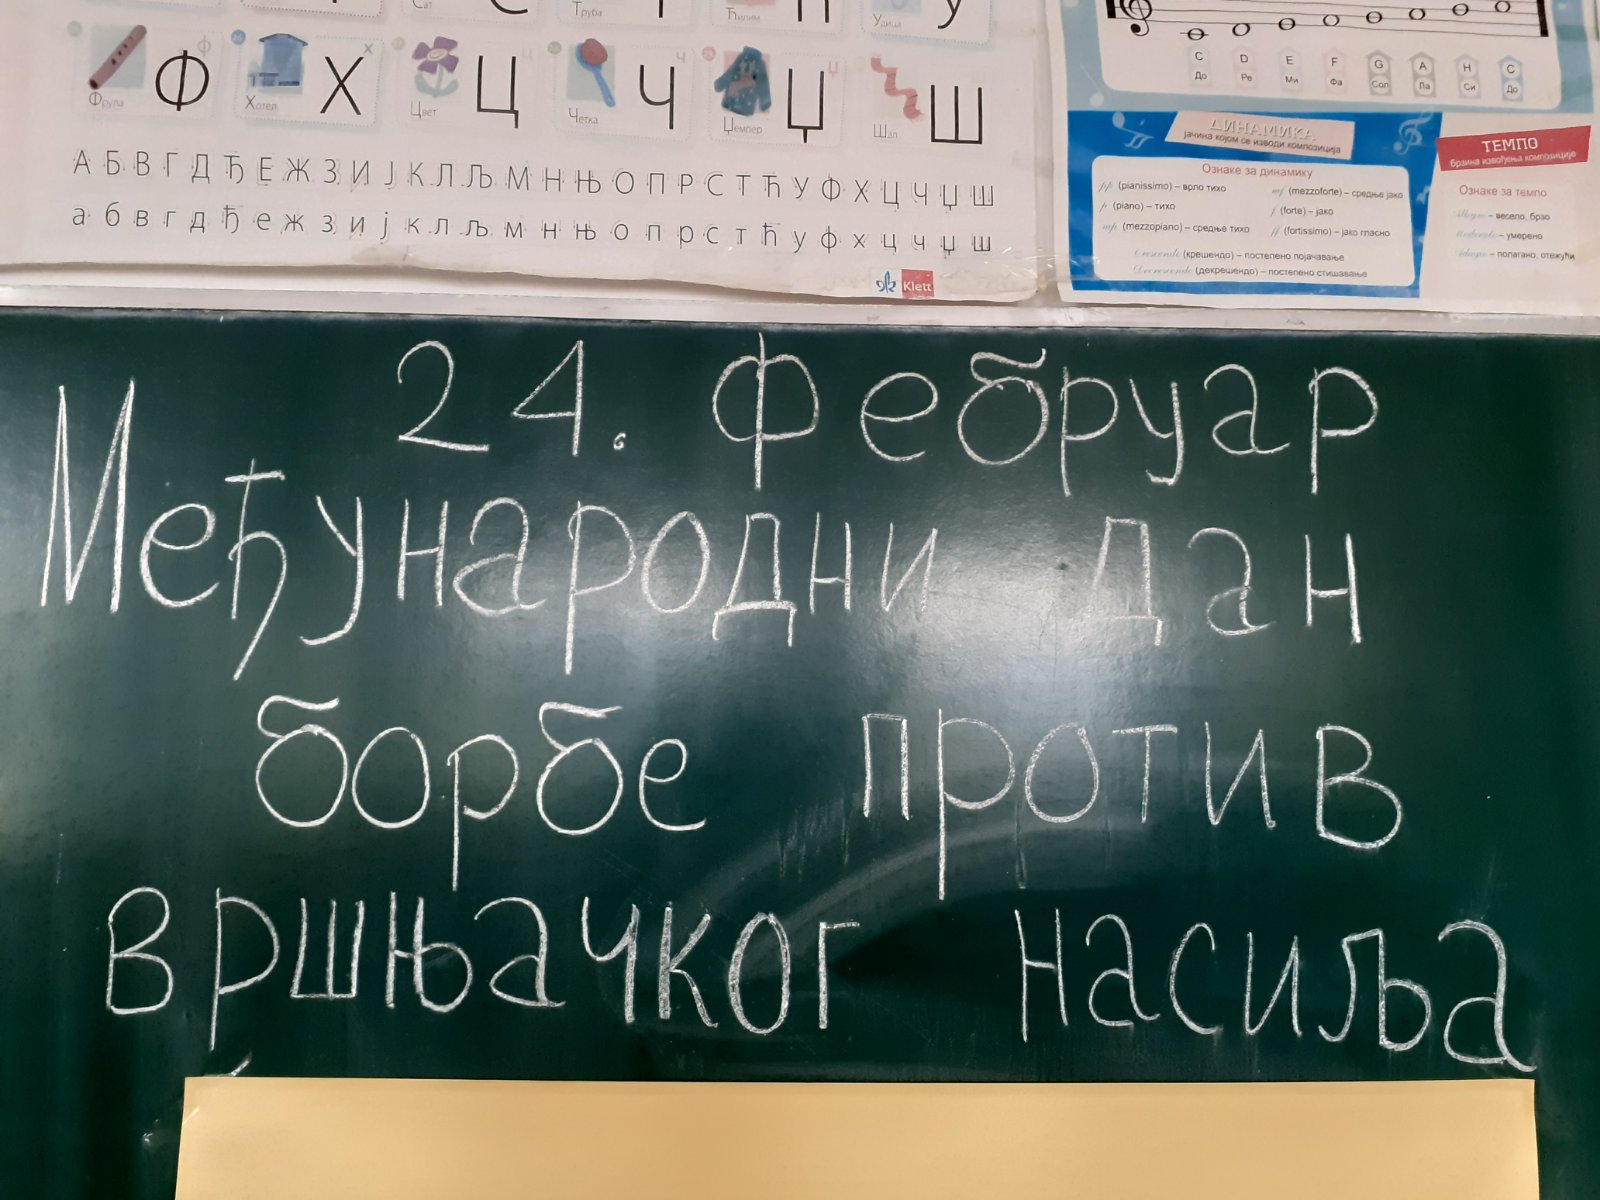 Сат
Труба
Ћилим
Удица
Фрула Ф ф
Хотел Х х
Цвет Ц ц
Четка Ч ч
Џемпер Џ џ
Шал Ш
А Б В Г Д Ђ Е Ж З И Ј К Л Љ М Н Њ О П Р С Т Ћ У Ф Х Ц Ч Џ Ш
а б в г д ђ е ж з и ј к л љ м н њ о п р с т ћ у ф х ц ч џ ш
Klett
C D E F G A H C
До Ре Ми Фа Сол Ла Си До
ДИНАМИКА
јачина којом се изводи композиција
Ознаке за динамику
pp (pianissimo) – врло тихо
p (piano) – тихо
mp (mezzopiano) – средње тихо
mf (mezzoforte) – средње јако
f (forte) – јако
ff (fortissimo) – јако гласно
Crescendo (крешендо) – постепено појачавање
Decrescendo (декрешендо) – постепено стишавање
ТЕМПО
брзина извођења композиције
Ознаке за темпо
Allegro – весело, брзо
Moderato – умерено
Adagio – полагано, отежући
24. фебруар
Међународни дан
борбе против
вршњачког насиља